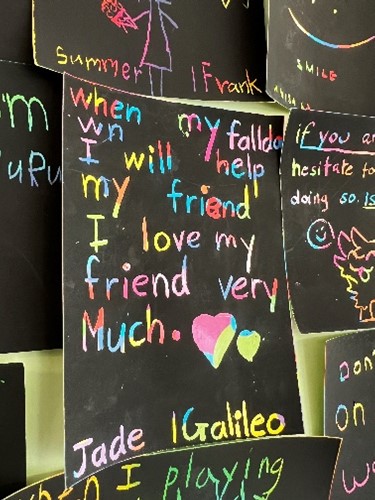 Summer 1Frank
SMILE
when my falldo
wn
I will help
my friend
I love my
friend very
Much.
Jade 1Galileo
if you
hesitate to
doing so. is
Don't
on
I playing